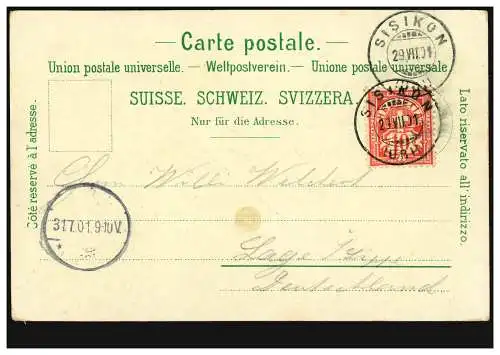 Carte postale.
Union postale universelle. — Weltpostverein. — Unione postale universale
SUISSE. SCHWEIZ. SVIZZERA.
Nur für die Adresse.
Côté réservé à l'adresse.
Lato riservato all' indirizzo.
SISIKON
29.VII.01
SISIKON
29.VII.01
(URI)
10
31.7.01.9-10V.
Herrn Willi
Lage i/Lippe
Deutschland